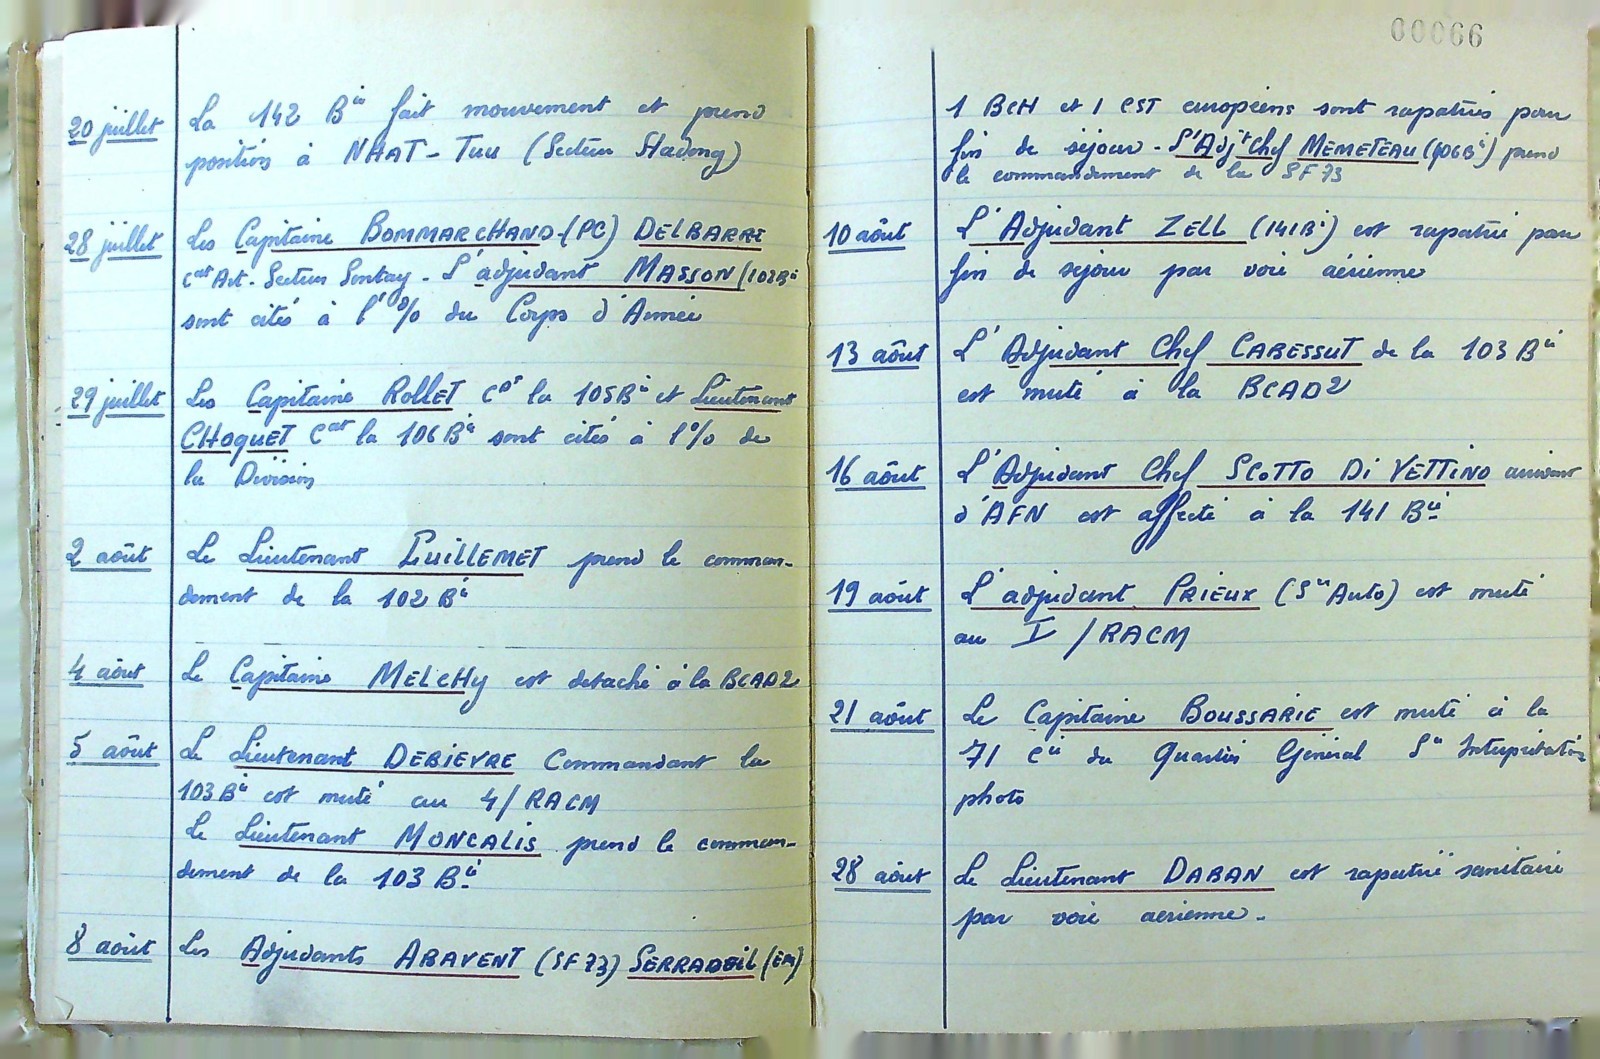 20 juillet La 142 Bie fait mouvement et prend
position à NHAT-TUU (Secteur Hadong)
28 juillet Les Capitaine BOMMARCHAND (PC) DELBARRE
Cdt Art. Secteur Sontay - L'adjudant MASSON (102Bie
sont cités à l'% du Corps d'Armée
29 juillet Les Capitaine ROLLET Cdt la 105Bie et Lieutenant
CHOQUET Cdt la 106 Bie sont cités à l'% de
la Division
2 août Le Lieutenant GUILLEMET prend le comman-
dement de la 102 Bie
4 août Le Capitaine MELCHY est detaché à la BCAD2
5 août Le Lieutenant DEBIEVRE Commandant la
103 Bie est muté au 4/RACM
Le Lieutenant MONCALIS prend le comman-
dement de la 103 Bie
8 août Les Adjudants ABAVENT (SF73) SERRADEIL (EM)
00066
1 BCH et 1 CST européens sont rapatriés pour
fin de séjour - L'Adjt Chef MEMETEAU (106Bie) prend
le commandement de la SF73
10 août L'Adjudant ZELL (141Bie) est rapatrié pour
fin de séjour par voie aérienne
13 août L'Adjudant Chef CABESSUT de la 103 Bie
est muté à la BCAD2
16 août L'Adjudant Chef SCOTTO DI VETTINO arrivant
d'AFN est affecté à la 141 Bie
19 août L'adjudant PRIEUX (Son Auto) est muté
au I/RACM
21 août Le Capitaine BOUSSARIE est muté à la
71 Cie du Quartier Général Son Interprétation
photo
28 août Le Lieutenant DABAN est rapatrié sanitaire
par voie aérienne.